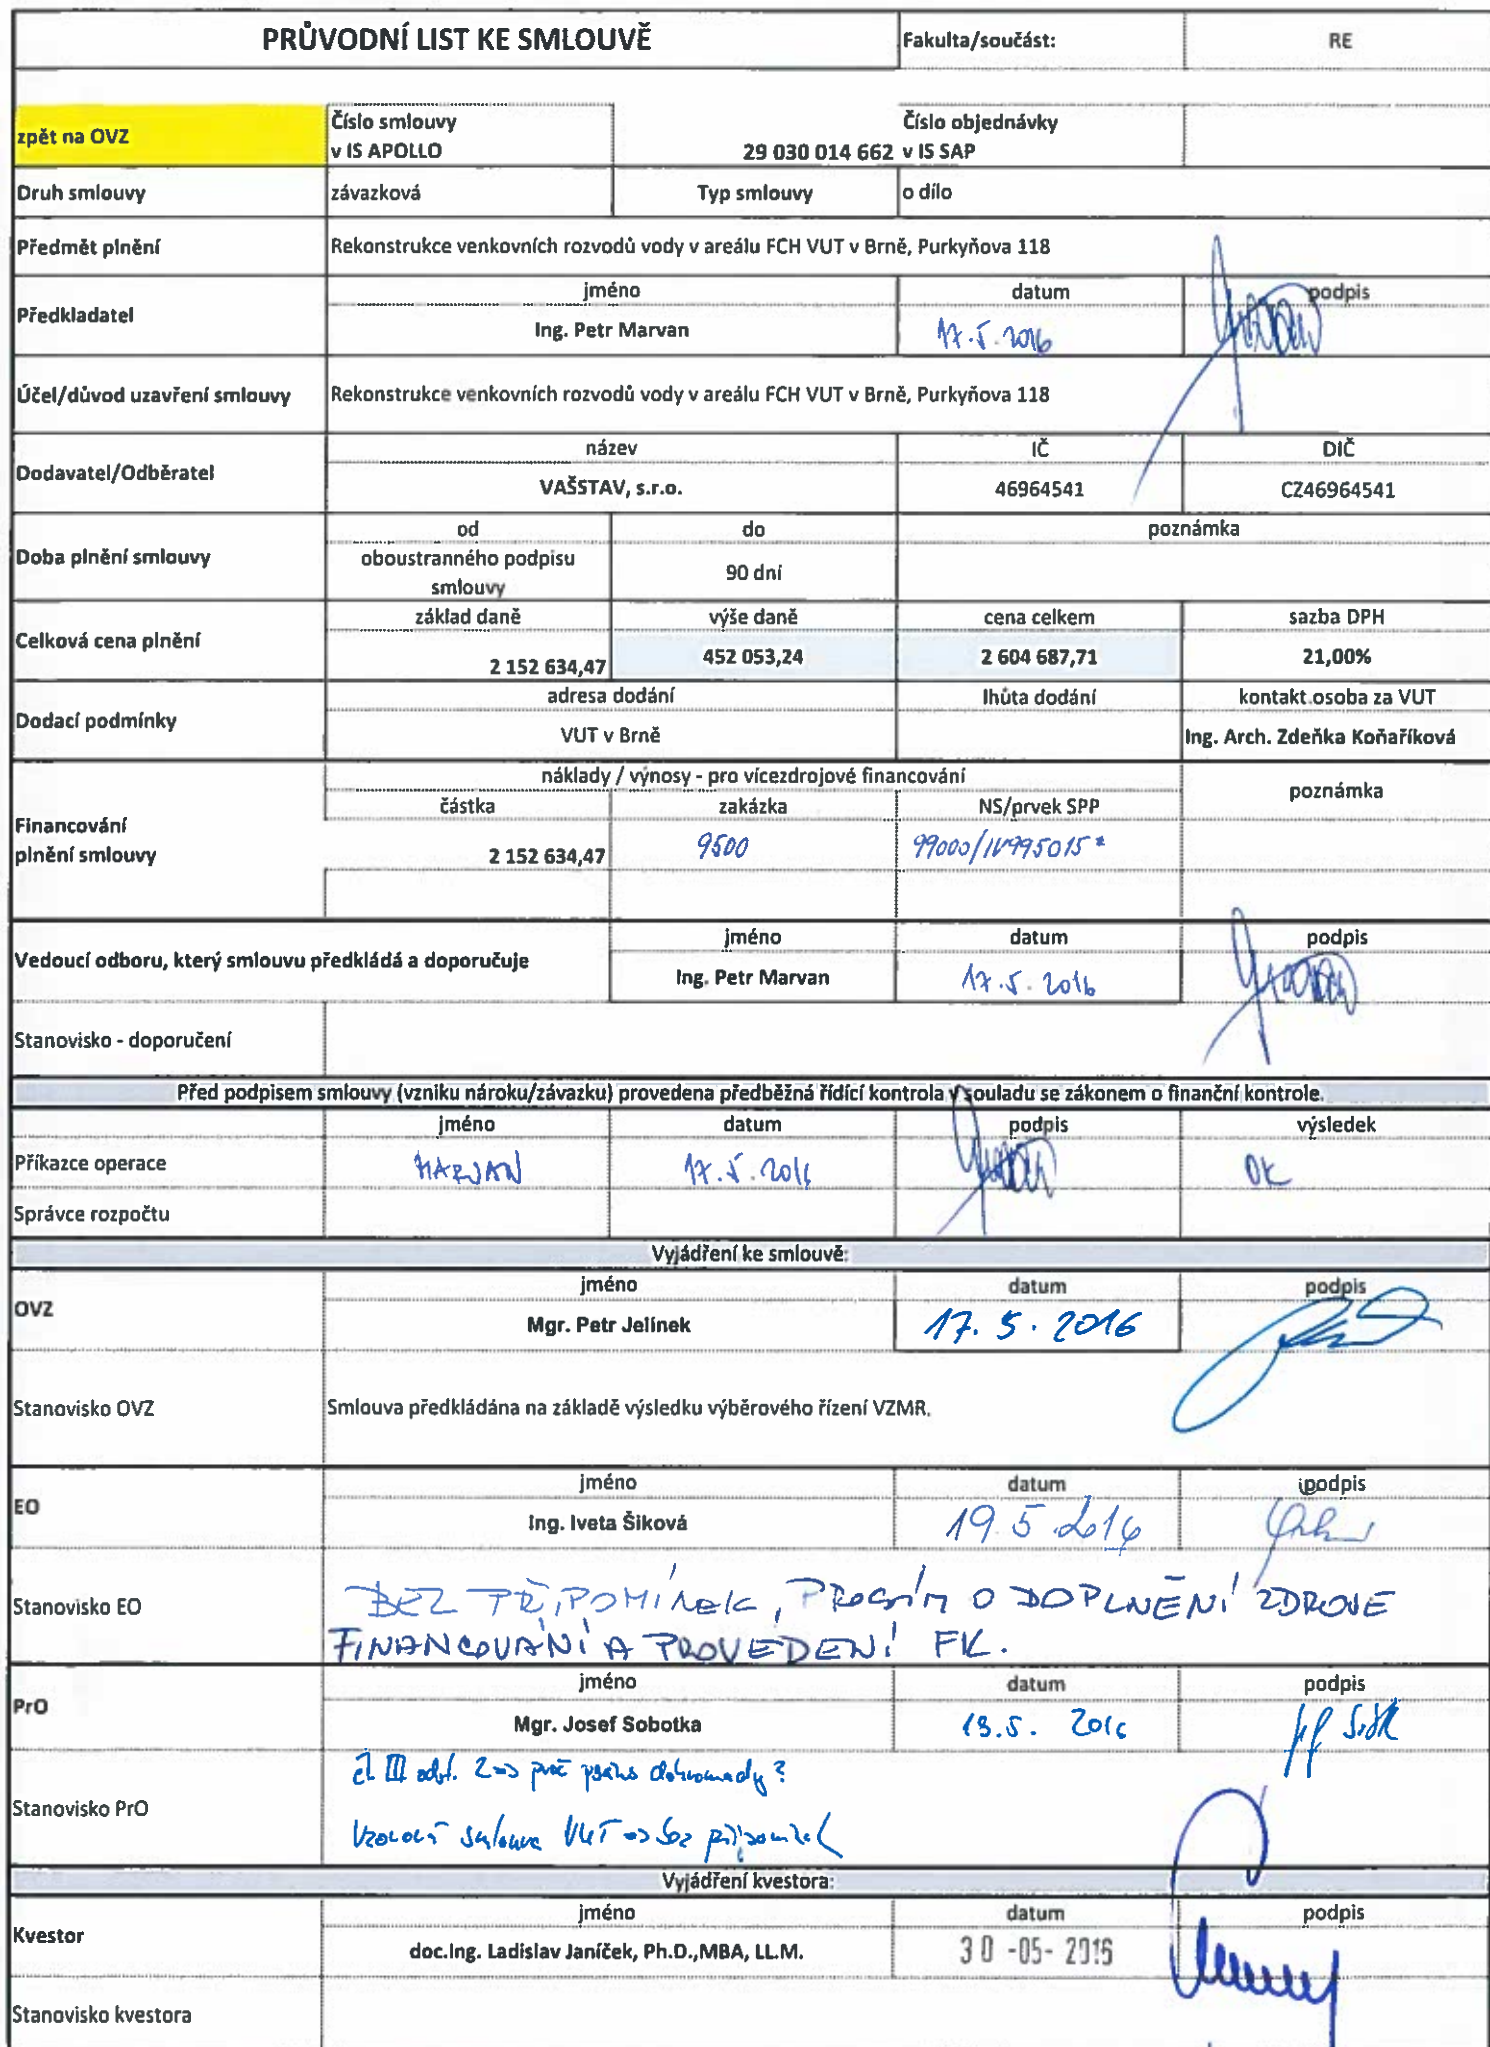 PRŮVODNÍ LIST KE SMLOUVĚ Fakulta/součást: RE
zpět na OVZ Číslo smlouvy v IS APOLLO 29 030 014 662 Číslo objednávky v IS SAP
Druh smlouvy závazková Typ smlouvy o dílo
Předmět plnění Rekonstrukce venkovních rozvodů vody v areálu FCH VUT v Brně, Purkyňova 118
jméno datum podpis
Předkladatel Ing. Petr Marvan 17.5.2016
Účel/důvod uzavření smlouvy Rekonstrukce venkovních rozvodů vody v areálu FCH VUT v Brně, Purkyňova 118
název IČ DIČ
Dodavatel/Odběratel VAŠSTAV, s.r.o. 46964541 CZ46964541
od do poznámka
Doba plnění smlouvy oboustranného podpisu smlouvy 90 dní
základ daně výše daně cena celkem sazba DPH
Celková cena plnění 2 152 634,47 452 053,24 2 604 687,71 21,00%
adresa dodání lhůta dodání kontakt.osoba za VUT
Dodací podmínky VUT v Brně Ing. Arch. Zdeňka Koňaříková
náklady / výnosy - pro vícezdrojové financování poznámka
částka zakázka NS/prvek SPP
Financování plnění smlouvy 2 152 634,47 9500 99000/IV995015*
jméno datum podpis
Vedoucí odboru, který smlouvu předkládá a doporučuje Ing. Petr Marvan 17.5.2016
Stanovisko - doporučení
Před podpisem smlouvy (vzniku nároku/závazku) provedena předběžná řídící kontrola v souladu se zákonem o finanční kontrole.
jméno datum podpis výsledek
Příkazce operace MARVAN 17.5.2016 OK
Správce rozpočtu
Vyjádření ke smlouvě:
jméno datum podpis
OVZ Mgr. Petr Jelínek 17.5.2016
Stanovisko OVZ Smlouva předkládána na základě výsledku výběrového řízení VZMR.
jméno datum podpis
EO Ing. Iveta Šiková 19.5.2016
Stanovisko EO BEZ PŘIPOMÍNEK, PROSÍM O DOPLNĚNÍ ZDROJE
FINANCOVÁNÍ A PROVEDENÍ FK.
jméno datum podpis
PrO Mgr. Josef Sobotka 13.5. 2016
čl. III odst. 2 => proč dohromady?
Stanovisko PrO
Vzorová smlouva VUT => bez připomínek
Vyjádření kvestora:
jméno datum podpis
Kvestor doc.Ing. Ladislav Janíček, Ph.D.,MBA, LL.M. 30 -05- 2016
Stanovisko kvestora